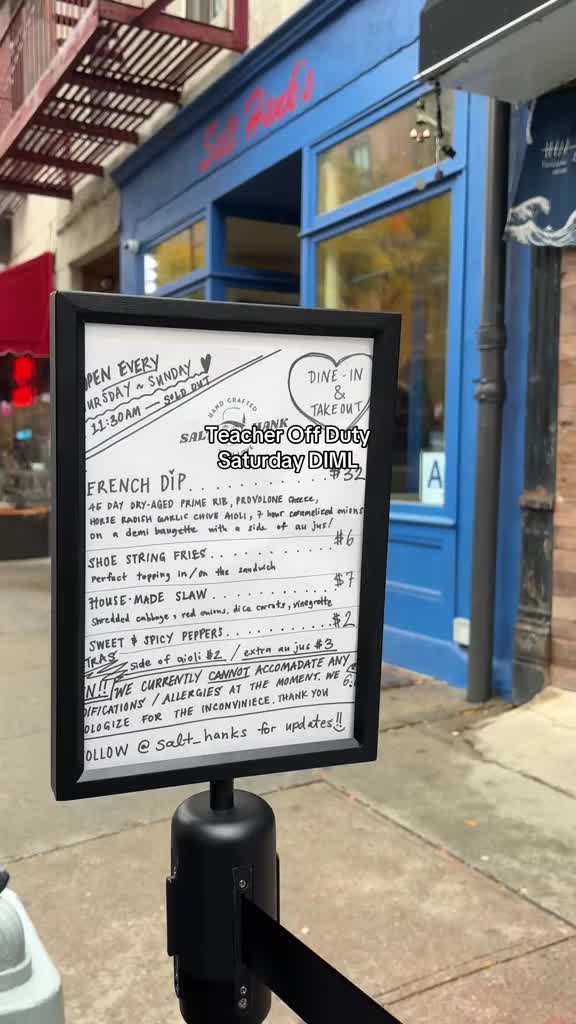 Salt Hank's
OPEN EVERY
THURSDAY ~ SUNDAY
11:30AM — SOLD OUT
DINE-IN
&
TAKEOUT
HAND CRAFTED
SALT HANK
Teacher Off Duty
Saturday DIML
FRENCH DIP . . . . . . . . . . . $32
45 DAY DRY-AGED PRIME RIB, PROVOLONE CHEESE,
HORSE RADISH GARLIC CHIVE AIOLI, 7 hour caramelized onions
on a demi baugette with a side of au jus!
SHOE STRING FRIES . . . . . . . . . $6
Perfect topping in/on the sandwich
HOUSE-MADE SLAW . . . . . . . . . $7
Shredded cabbage, red onions, dice carrots, vinegrette
SWEET & SPICY PEPPERS . . . . . . . . $2
TRAS side of aioli $2 / extra au jus $3
N!! WE CURRENTLY CANNOT ACCOMADATE ANY
DIFICATIONS / ALLERGIES AT THE MOMENT. WE
OLOGIZE FOR THE INCONVINIECE. THANK YOU
OLLOW @salt_hanks for updates!!
A